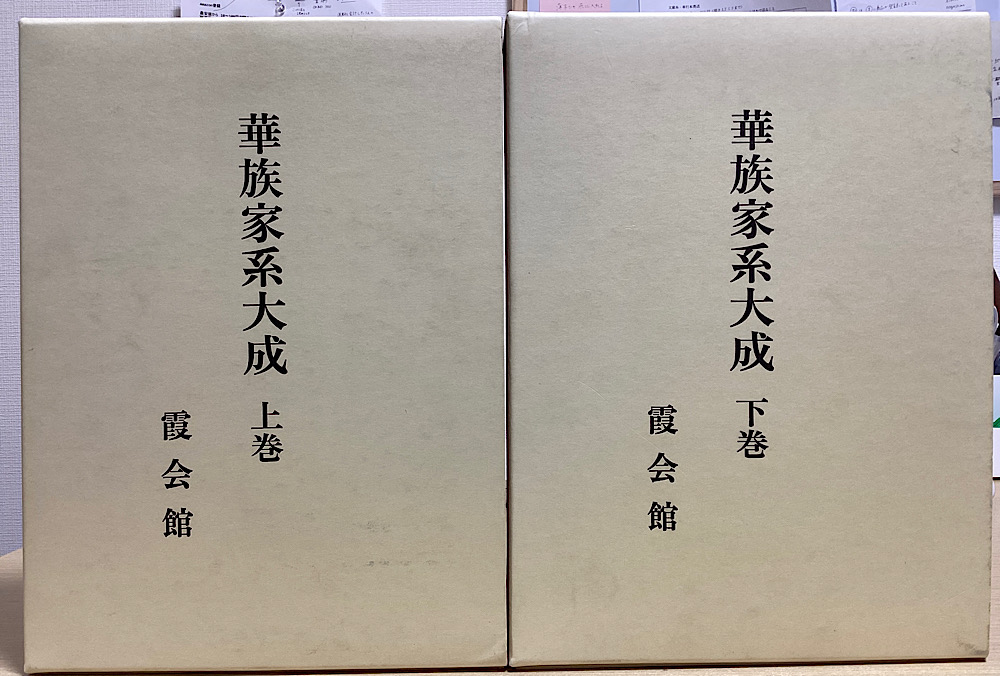 華族家系大成 上巻
霞会館
華族家系大成 下巻
霞会館